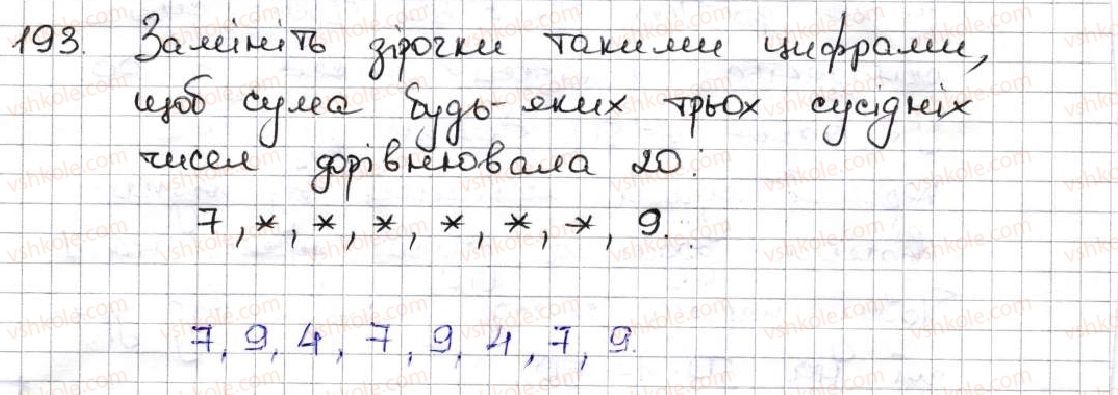 193. Замініть зірочки такими цифрами,
щоб сума будь-яких трьох сусідніх
чисел дорівнювала 20:
7, *, *, *, *, *, *, 9.
7, 9, 4, 7, 9, 4, 7, 9.